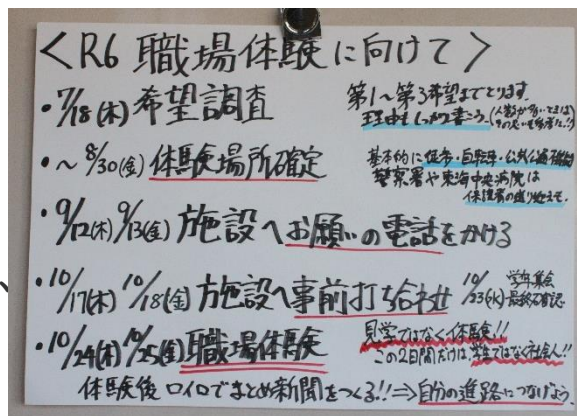 <R6 職場体験に向けて>
・7/18(木)希望調査
第1〜第3希望までとります。
理由もしっかり書こう。
・〜8/30(金)体験場所確定
基本的に徒歩・自転車・公共交通機関
警察署や東海中央病院は
保護者の送り迎えで。
・9/12(木)9/13(金)施設へお願いの電話をかける
・10/17(木)10/18(金)施設へ事前打ち合わせ
10/23(水)学年集会 最終確認
・10/24(木)10/25(金)職場体験
見学ではなく体験!!
この2日間だけは、学生ではなく社会人!!
体験後ロイロでまとめ新聞をつくる!!⇒自分の進路につなげよう。